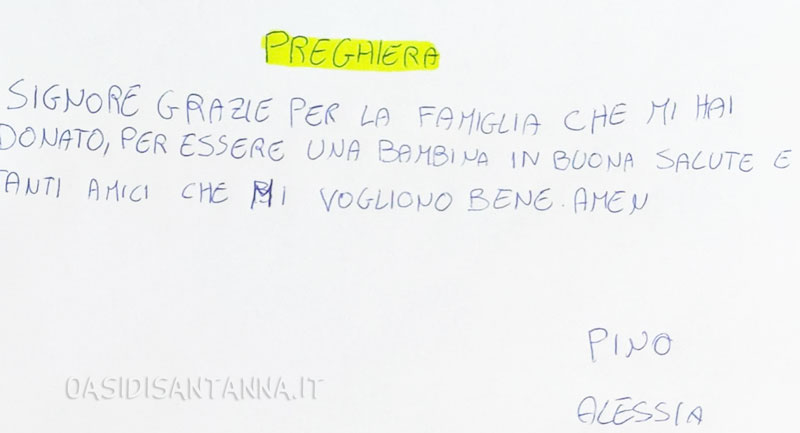 PREGHIERA
SIGNORE GRAZIE PER LA FAMIGLIA CHE MI HAI
DONATO, PER ESSERE UNA BAMBINA IN BUONA SALUTE E
TANTI AMICI CHE MI VOGLIONO BENE. AMEN
PINO
OASIDISANTANNA.IT
ALESSIA